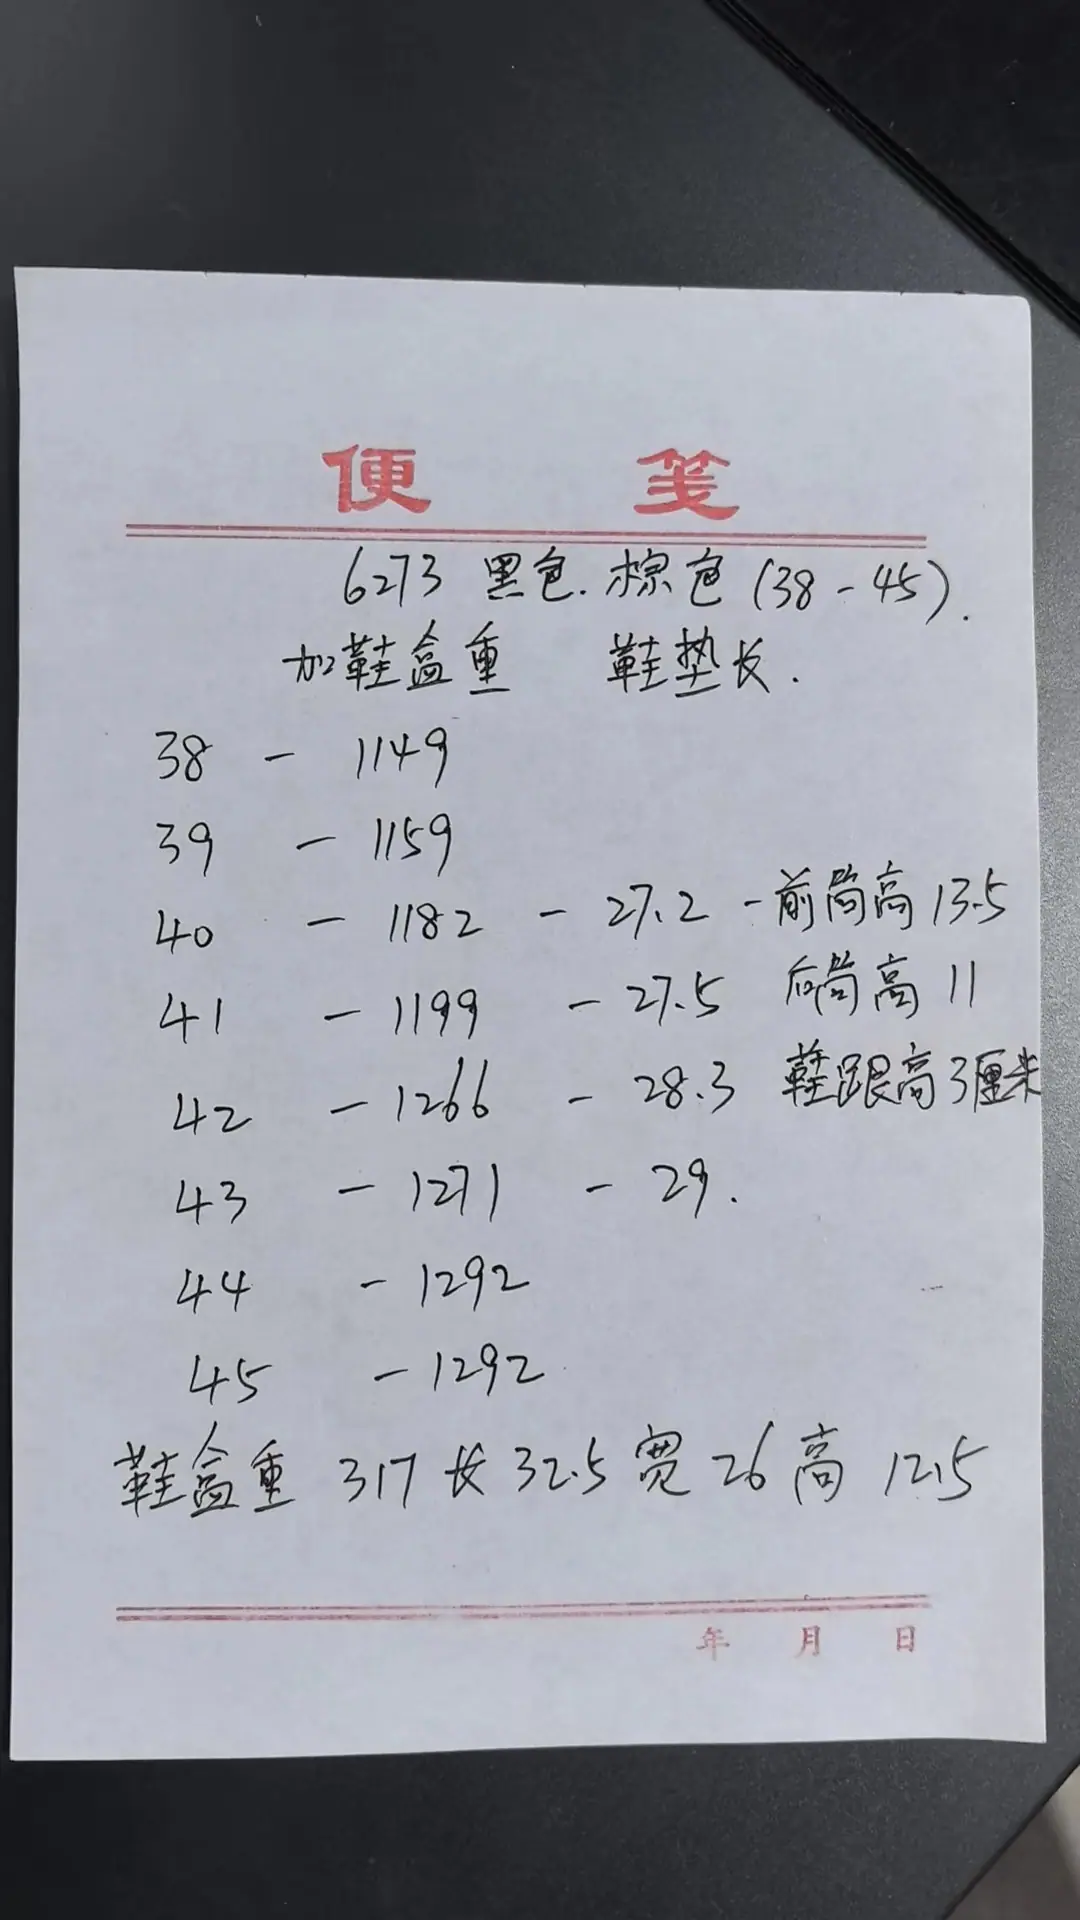 便 笺
6273 黑色.棕色(38-45).
加鞋盒重 鞋垫长.
38 - 1149
39 - 1159
40 - 1182 - 27.2 - 前筒高 13.5
41 - 1199 - 27.5 后筒高 11
42 - 1266 - 28.3 鞋跟高3厘米
43 - 1271 - 29.
44 - 1292
45 - 1292
鞋盒重 317 长 32.5 宽 26 高 12.5
年 月 日